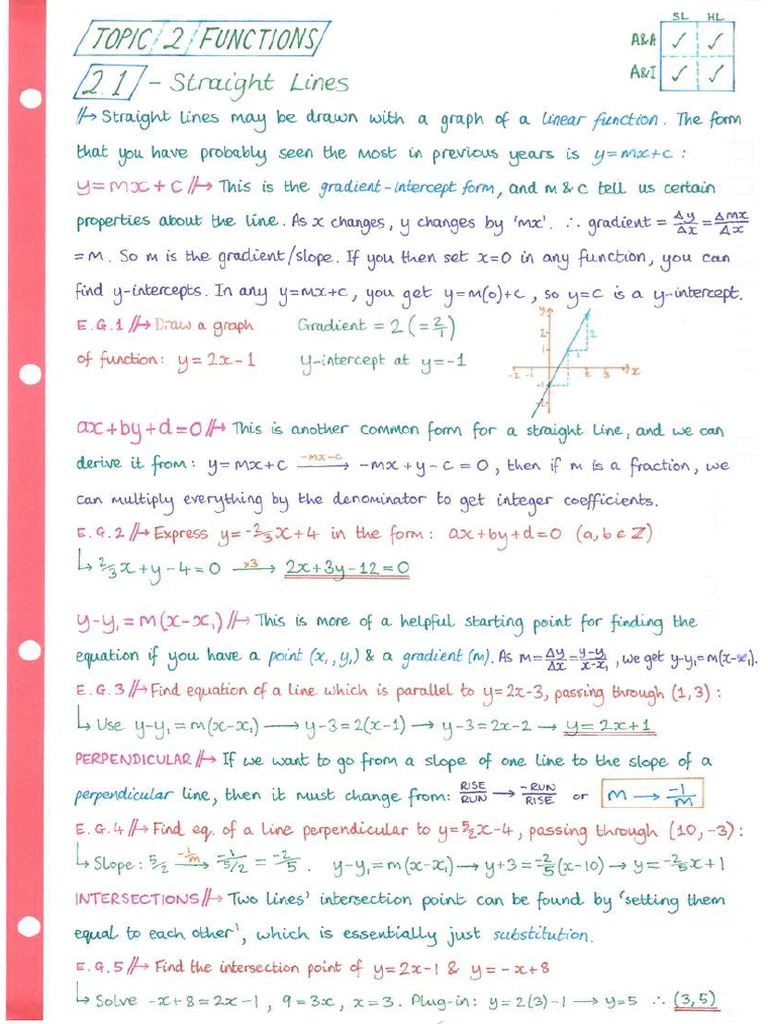 TOPIC 2 FUNCTIONS
SL HL
A&A ✓ ✓
A&I ✓ ✓
2.1 - Straight Lines
↦ Straight lines may be drawn with a graph of a linear function. The form
that you have probably seen the most in previous years is y=mx+c :
y=mx+c ↦ This is the gradient-intercept form, and m & c tell us certain
properties about the line. As x changes, y changes by 'mx'. ∴ gradient = Δy/Δx = Δmx/Δx
=m. So m is the gradient/slope. If you then set x=0 in any function, you can
find y-intercepts. In any y=mx+c, you get y=m(0)+c, so y=c is a y-intercept.
E.G.1 ↦ Draw a graph Gradient = 2 (=2/1)
of function: y=2x-1 y-intercept at y=-1
y
2
1
-2 -1 1 2 3 x
-1
-2
2
1
ax+by+d=0 ↦ This is another common form for a straight line, and we can
derive it from: y=mx+c -mx-c → -mx+y-c=0, then if m is a fraction, we
can multiply everything by the denominator to get integer coefficients.
E.G.2 ↦ Express y=-2/3x+4 in the form: ax+by+d=0 (a,b∈ℤ)
↳ 2/3x+y-4=0 ×3 → 2x+3y-12=0
y-y₁=m(x-x₁) ↦ This is more of a helpful starting point for finding the
equation if you have a point (x₁,y₁) & a gradient (m). As m=Δy/Δx=y-y₁/x-x₁, we get y-y₁=m(x-x₁).
E.G.3 ↦ Find equation of a line which is parallel to y=2x-3, passing through (1,3) :
↳ Use y-y₁=m(x-x₁) → y-3=2(x-1) → y-3=2x-2 → y=2x+1
PERPENDICULAR ↦ If we want to go from a slope of one line to the slope of a
perpendicular line, then it must change from: RISE/RUN → -RUN/RISE or m → -1/m
E.G.4 ↦ Find eq. of a line perpendicular to y=5/2x-4, passing through (10,-3) :
↳ Slope: 5/2 -1/m → -1/5/2 = -2/5. y-y₁=m(x-x₁) → y+3=-2/5(x-10) → y=-2/5x+1
INTERSECTIONS ↦ Two lines' intersection point can be found by 'setting them
equal to each other', which is essentially just substitution.
E.G.5 ↦ Find the intersection point of y=2x-1 & y=-x+8
↳ Solve -x+8=2x-1, 9=3x, x=3. Plug-in: y=2(3)-1 → y=5 ∴ (3,5)